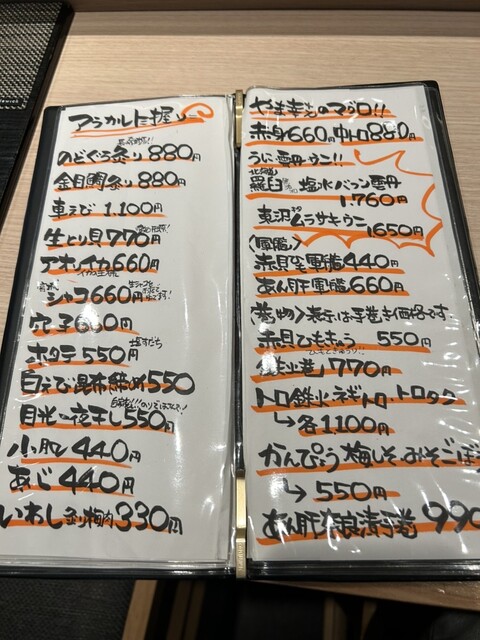 アラカルト握り
のどぐろ炙り 880円
金目鯛炙り 880円
車えび 1,100円
生とり貝 770円
アオイカ 660円
シャコ 660円
穴子 660円
ホタテ 550円
塩すだち
白えび昆布締め 550
目光一夜干し 550円
小肌 440円
あじ 440円
いわし 炙り梅肉 330円
やま幸さんのマグロ!!
赤身 660円 中トロ 880円
うに・雲丹・ウニ!!
北海道
羅臼 塩水バフン雲丹
1,760円
ムラサキウニ
1,650円
〈軍艦〉
赤貝ヒモ軍艦 440円
あん肝軍艦 660円
〈巻物〉表示は手巻き価格です。
赤貝ひもきゅう 550円
鉄火巻 770円
トロ鉄火 ネギトロ、トロタク
↳各1,100円
かんぴょう 梅しそ、おしんこ
↳550円
あん肝奈良漬手巻 990